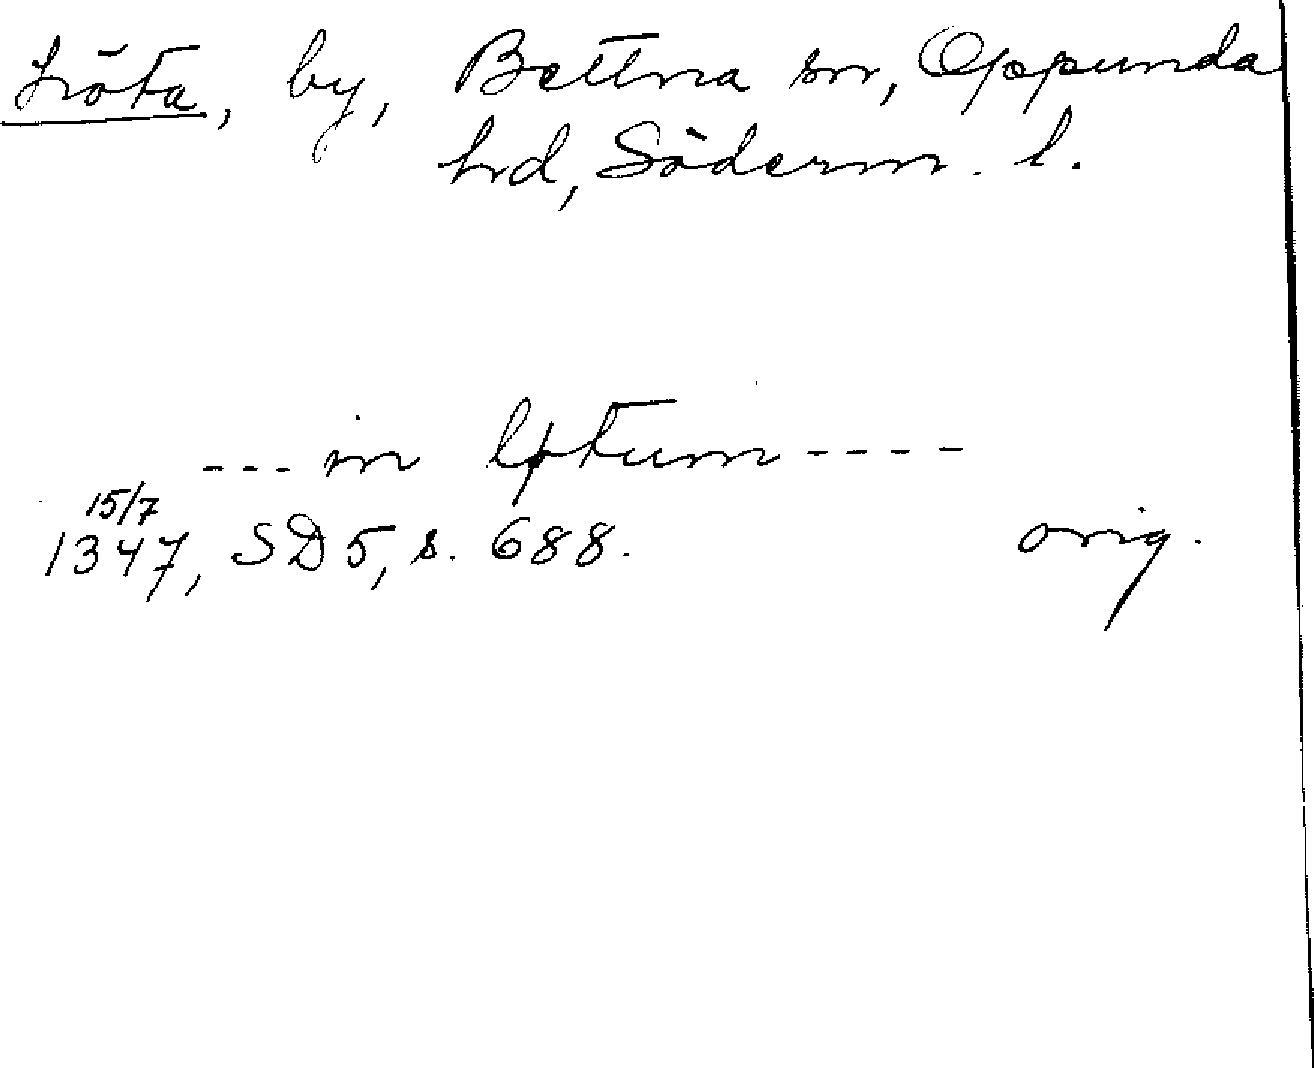 Löta, by, Bettna sn, Oppunda
hd, Söderm. l.
--- in løtum ----
15/7
1347, SD 5, s. 688. orig.